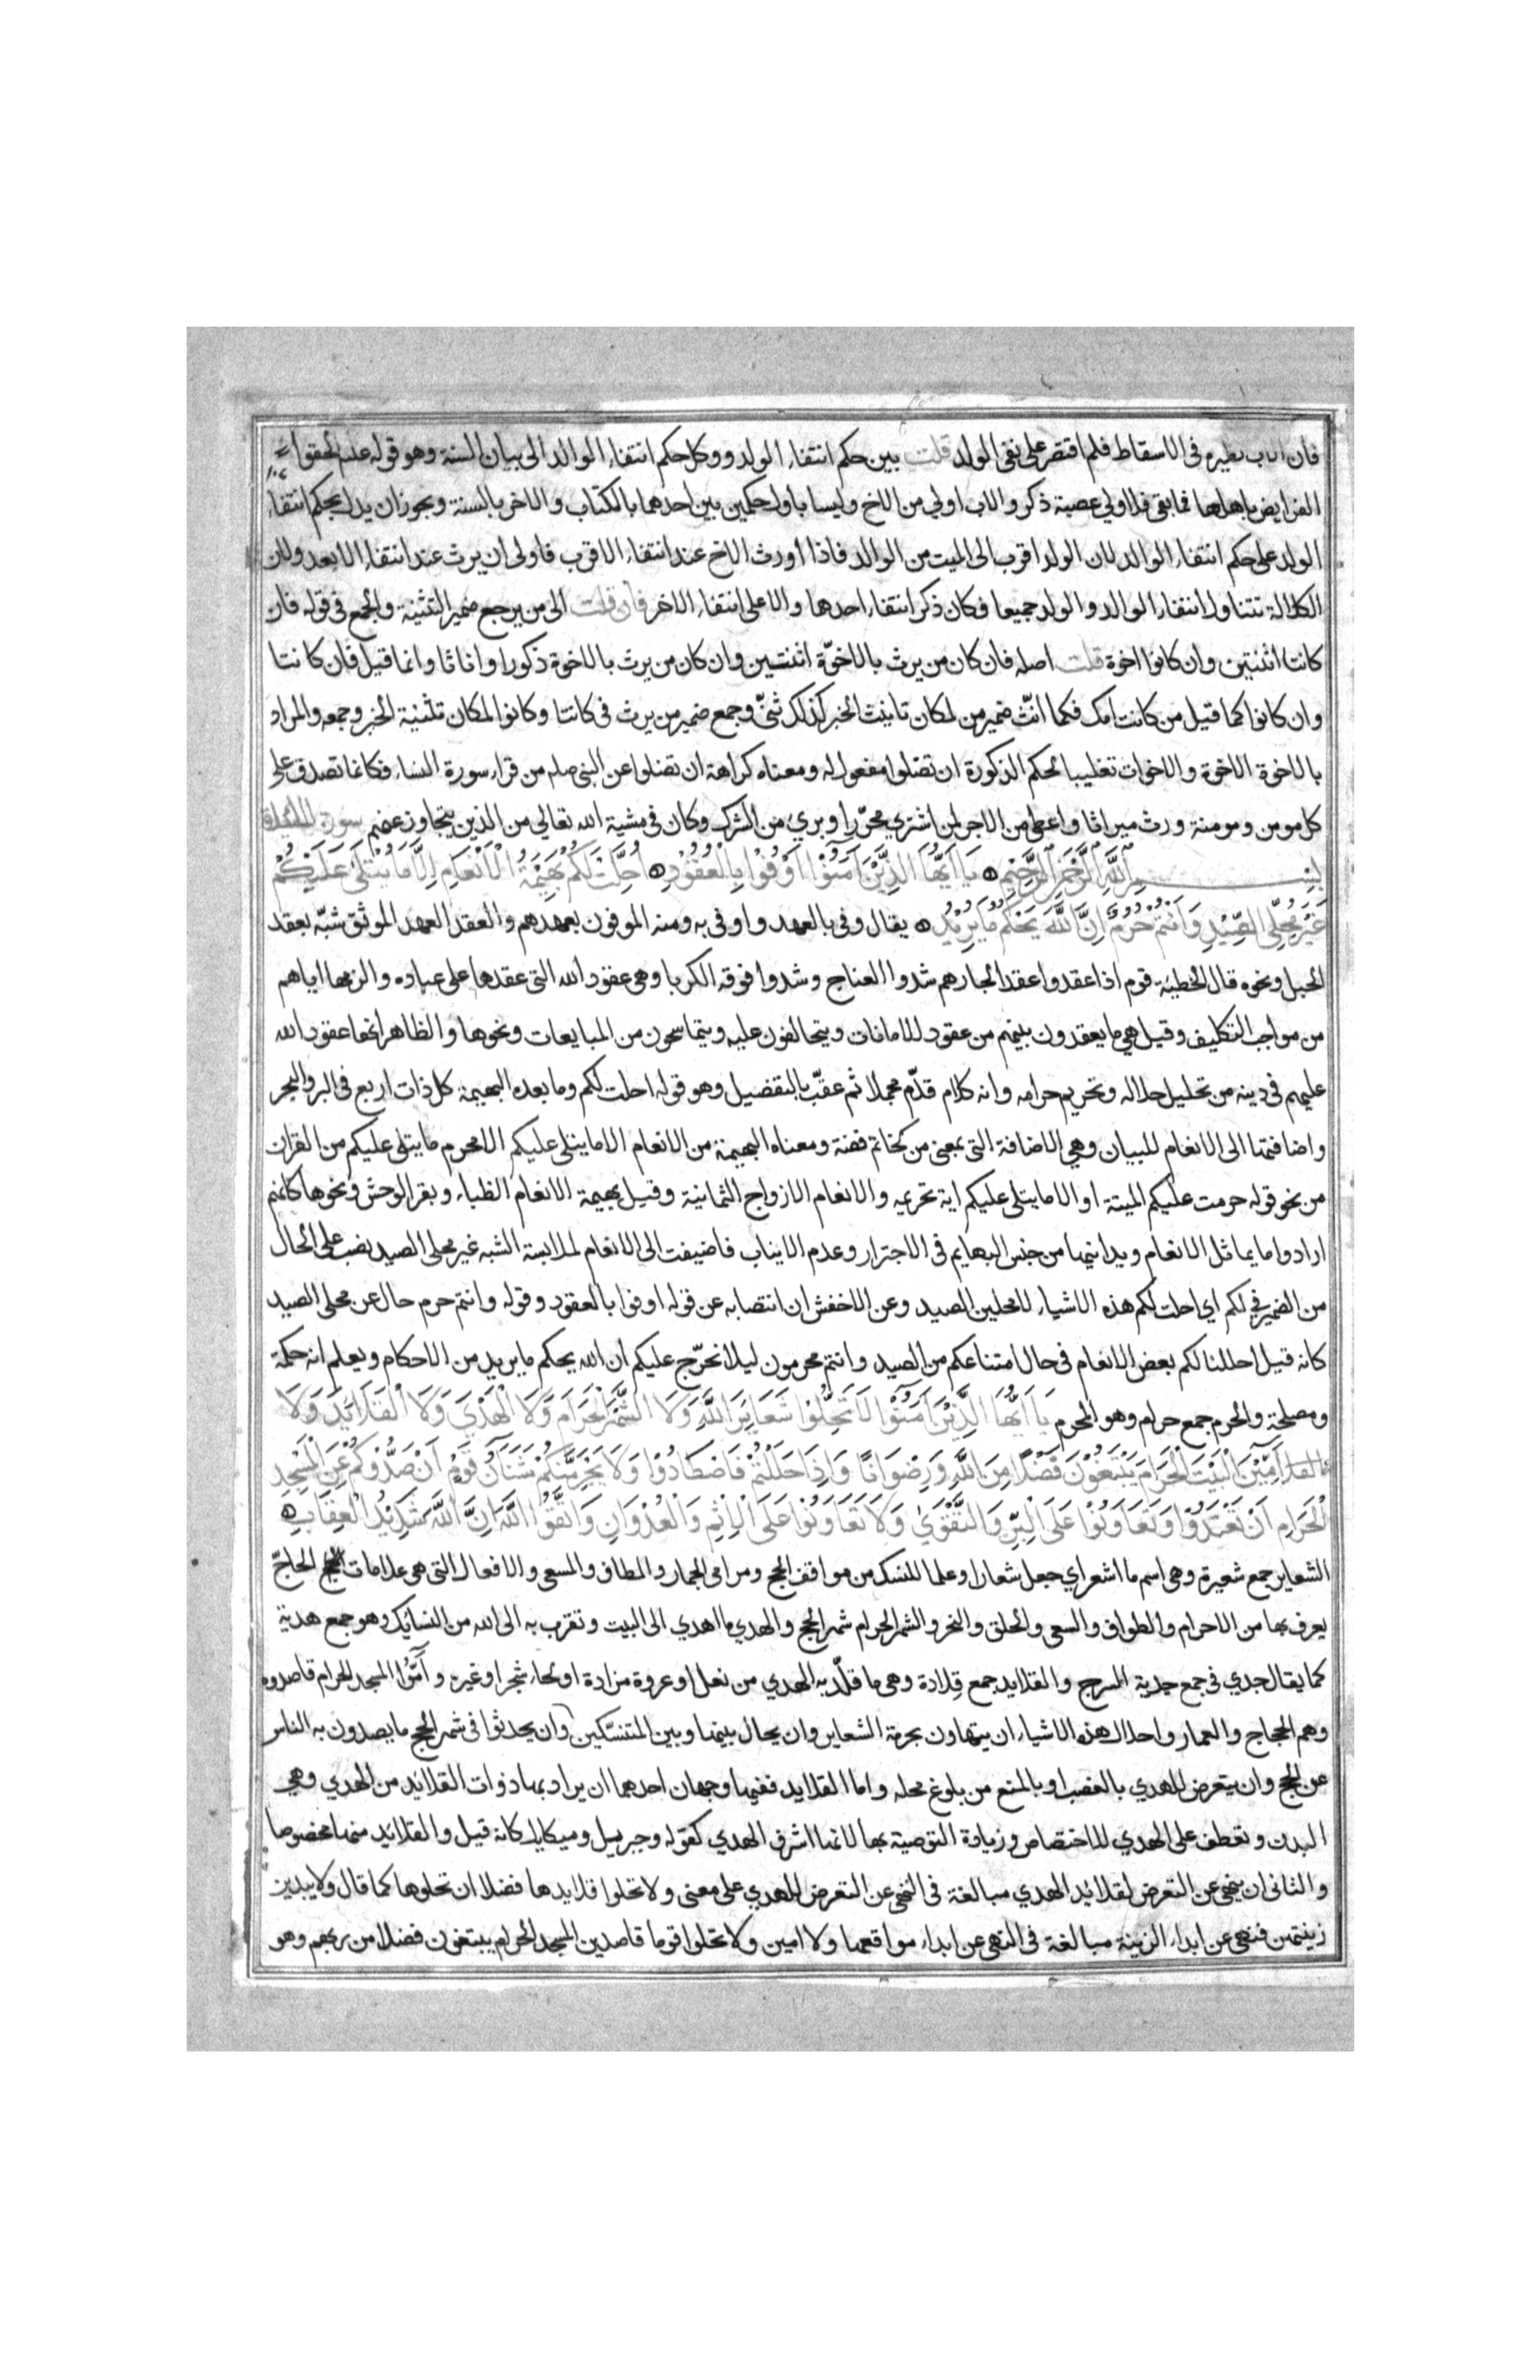 فان الاب نظيره في الاسقاط فلم اقتصر على نفي الولد قلت بين حكم انتفاء الولد ووكل حكم انتفاء الوالد الى بيان السنة وهو قوله علم الحقوا
الفرايض باهلها فما بقي فلاولي عصبة ذكر والاب اولي من الاخ وليسا باول حكمين بين احدهما بالكتاب والاخر بالسنة ويجوز ان يدل بحكم انتفاء
الولد على حكم انتفاء الوالد لان الولد اقرب الى الميت من الوالد فاذا اورث الاخ عند انتفاء الاقرب فاولى ان يرث عند انتفاء الابعد ولان
الكلالة تتناول انتفاء الوالد والولد جميعا فكان ذكر انتفاء احدها دالا على انتفاء الاخر فان قلت الى من يرجع ضمير التثنية والجمع في قوله فان
كانتا اثنتين وان كانوا اخوة قلت اصله فان كان من يرث بالاخوّة اثنتين وان كان من يرث بالاخوة ذكورا واناثا وانما قيل فان كانتا
وان كانوا كما قيل من كانت امك فكما انّث ضمير من لمكان تانيث الخبر كذلك ثنّي وجمع ضمير من يرث في كانتا وكانوا لمكان تثنية الخبر وجمعه والمراد
بالاخوة الاخوة والاخوات تغليبا لحكم الذكورة ان تضلوا مفعول له ومعناه كراهة ان تضلوا عن النبي صلم من قراء سورة النساء فكانما تصدق على
كل مومن ومومنة ورث ميراثا واعطي من الاجر لمن اشتري محرّرا وبرئ من الشرك وكان في مشية الله تعالي من الذين يتجاوز عنهم سورة المائدة
بِسْمِ اللَّهِ الرَّحْمَنِ الرَّحِيْمِ يَا اَيُّهَا الَّذِيْنَ آمَنُوْا اَوْفُوْا بِالْعُقُوْدِ اُحِلَّتْ لَكُمْ بَهِيْمَةُ الْاَنْعَامِ اِلَّا مَا يُتْلَى عَلَيْكُمْ
غَيْرَ مُحِلِّي الصَّيْدِ وَاَنْتُمْ حُرُمٌ اِنَّ اللَّهَ يَحْكُمُ مَا يُرِيْدُ يقال وفي بالعهد واوفى به ومنه الموفون بعهدهم والعقد العهد الموثق شبّه بعقد
الحبل ونحوه قال الحطيئة قوم اذا عقدوا عقدا لجارهم شدوا العناج وشدوا فوقه الكربا وهي عقود الله التي عقدها على عباده والزمها اياهم
من مواجب التكليف وقيل هي ما يعقدون بينهم من عقود للامانات ويتحالفون عليه ويتماسحون من المبايعات ونحوها والظاهر انها عقود الله
عليهم في دينه من تحليل حلاله وتحريم حرامه وانه كلام قدّم مجملا ثم عقّب بالتفضيل وهو قوله احلت لكم وما بعده البهيمة كل ذات اربع في البر والبحر
واضافتها الى الانعام للبيان وهي الاضافة التي بمعنى من كخاتم فضة ومعناه البهيمة من الانعام الا ما يتلى عليكم الا محرم ما يتلى عليكم من القران
من نحو قوله حرمت عليكم الميتة او الا ما يتلى عليكم اية تحريمه والانعام الازواج الثمانية وقيل بهيمة الانعام الظباء وبقر الوحش ونحوها كانهم
ارادوا ما يماثل الانعام ويدانيها من جنس البهايم في الاجترار وعدم الانياب فاضيفت الى الانعام لملابسة الشبه غير محلي الصيد نصب على الحال
من الضمير في لكم اي احلت لكم هذه الاشياء لا محلين الصيد وعن الاخفش ان انتصابه عن قوله اوفوا بالعقود وقوله وانتم حرم حال عن محلي الصيد
كانه قيل احللنا لكم بعض الانعام في حال امتناعكم من الصيد وانتم محرمون ليلا نحرّج عليكم ان الله يحكم ما يريد من الاحكام ويعلم انه حكمة
ومصلحة والحرم جمع حرام وهو المحرم يَا اَيُّهَا الَّذِيْنَ آمَنُوْا لَا تُحِلُّوْا شَعَايِرَ اللَّهِ وَلَا الشَّهْرَ الْحَرَامَ وَلَا الْهَدْيَ وَلَا الْقَلَائِدَ وَلَا
آمِّيْنَ الْبَيْتَ الْحَرَامَ يَبْتَغُوْنَ فَضْلًا مِنَ اللَّهِ وَرِضْوَانًا وَاِذَا حَلَلْتُمْ فَاصْطَادُوْا وَلَا يَجْرِمَنَّكُمْ شَنَآنُ قَوْمٍ اَنْ صَدُّوْكُمْ عَنِ الْمَسْجِدِ
الْحَرَامِ اَنْ تَعْتَدُوْا وَتَعَاوَنُوْا عَلَى الْبِرِّ وَالتَّقْوَيٰ وَلَا تَعَاوَنُوْا عَلَى الْاِثْمِ وَالْعُدْوَانِ وَاتَّقُوا اللَّهَ اِنَّ اللَّهَ شَدِيْدُ الْعِقَابِ
الشعاير جمع شعيرة وهي اسم ما اشعر اي جعل شعارا وعلما للنسك من مواقف الحج ومرامي الجمار والمطاف والمسعى والافعال التي هي علامات الحاجّ
يعرف بها من الاحرام والطواف والسعي والحلق والنحر والشهر الحرام شهر الحج والهدي ما اهدي الى البيت وتقرب به الى الله من النسائك وهو جمع هدية
كما يقال جدي في جمع جدية السرج والقلايد جمع قِلادة وهي ما قلّد به الهدي من نعل او عروة مزادة او لحاء شجر او غيره وآمّوا المسجد الحرام قاصدوه
وهم الحجاج والعمار واحلال هذه الاشياء ان يتهاون بحرمة الشعاير وان يحال بينها وبين المتنسّكين وان يحدثوا في شهر الحج ما يصدون به الناس
عن الحج وان يتعرض للهدي بالغصب او بالمنع من بلوغ محله واما القلايد ففيها وجهان احدهما ان يراد بها ذوات القلائد من الهدي وهي
البدن وتعطف على الهدي للاختصاص وزيادة التوصية بها لانها اشرف الهدي كقوله وجبريل وميكايل كانه قيل والقلائد منها مخصوصا
والثاني ان ينهي عن التعرض لقلائد الهدي مبالغة في النهي عن التعرض للهدي على معنى ولا تحلوا قلايدها فضلا ان تحلوها كما قال ولا يبدين
زينتهن فنهى عن ابداء الزينة مبالغة في النهي عن ابداء مواقعها ولا امين ولا تحلوا قوما قاصدين المسجد الحرام يبتغون فضلا من ربهم وهو